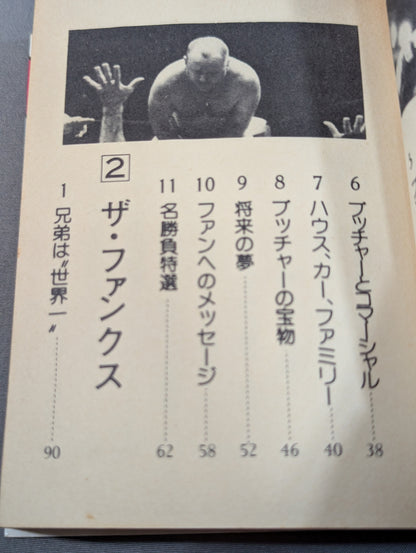 6 ブッチャーとコマーシャル……38
7 ハウス、カー、ファミリー……40
8 ブッチャーの宝物……46
9 将来の夢……52
10 ファンへのメッセージ……58
11 名勝負特選……62
2 ザ・ファンクス
1 兄弟は〝世界一〟……90